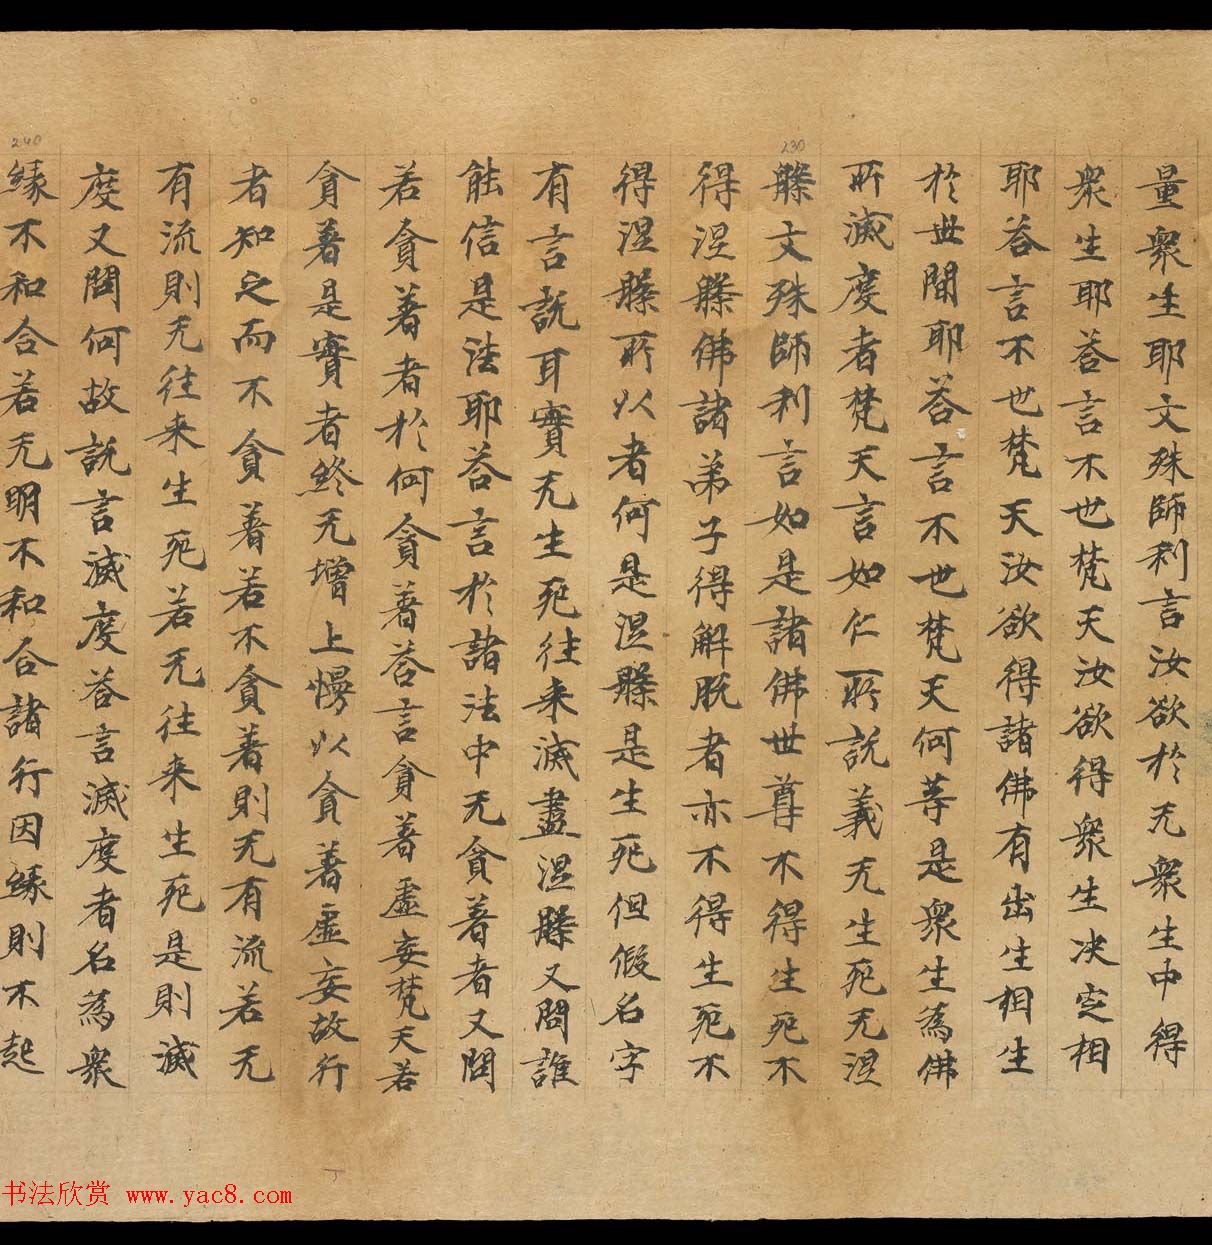 240
230
量衆生耶文殊師利言汝欲於无衆生中得
衆生耶荅言不也梵天汝欲得衆生决定相
耶荅言不也梵天汝欲得諸佛有出生相生
於世間耶荅言不也梵天何等是衆生為佛
所滅度者梵天言如仁所說義无生死无涅
槃文殊師利言如是諸佛世尊不得生死不
得涅槃佛諸弟子得解脫者亦不得生死不
得涅槃所以者何是涅槃是生死但假名字
有言說耳實无生死往来滅盡涅槃又問誰
能信是法耶荅言於諸法中无貪著者又問
若貪著者於何貪著荅言貪著虛妄梵天若
貪著是實者終无增上慢以貪著虛妄故行
者知之而不貪著若不貪著則无有流若无
有流則无往来生死若无往来生死是則滅
度又問何故說言滅度荅言滅度者名為衆
緣不和合若无明不和合諸行因緣則不起
书法欣赏 www.yac8.com